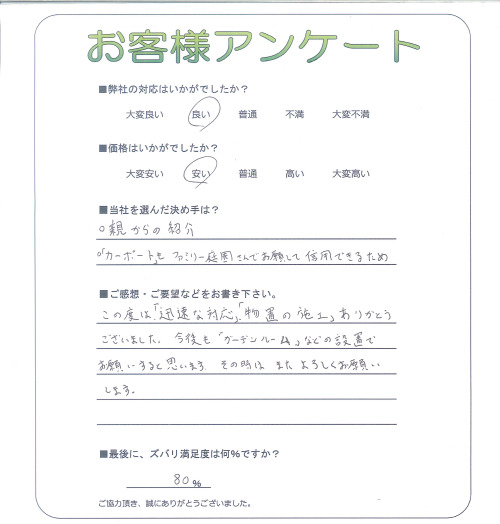 お客様アンケート
■弊社の対応はいかがでしたか？
大変良い 良い 普通 不満 大変不満
■価格はいかがでしたか？
大変安い 安い 普通 高い 大変高い
■当社を選んだ決め手は？
○親からの紹介
○「カーポート」もファミリー庭園さんでお願して信用できるため
■ご感想・ご要望などをお書き下さい。
この度は「迅速な対応」「物置の施工」ありがとう
ございました。今後も「ガーデンルーム」などの設置で
お願いすると思います。その時はまたよろしくお願い
します。
■最後に、ズバリ満足度は何％ですか？
80％
ご協力頂き、誠にありがとうございました。